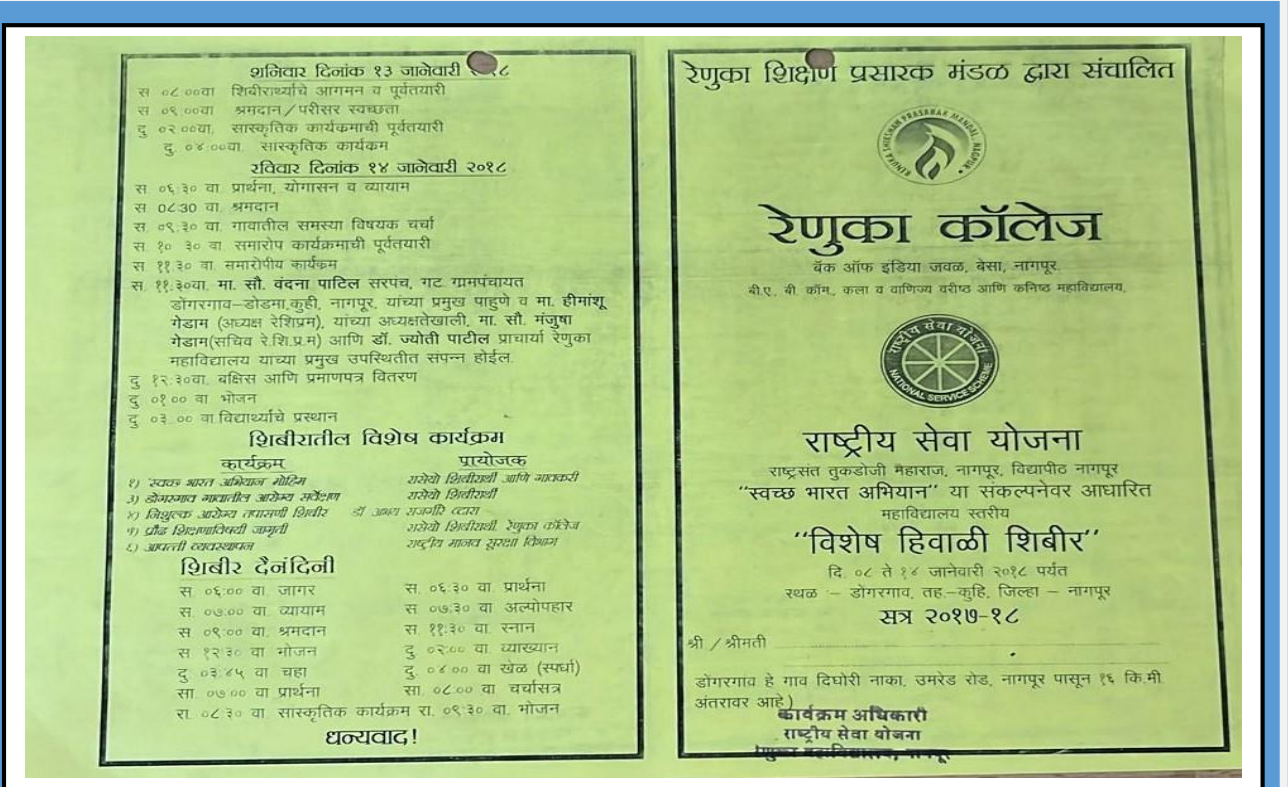 शनिवार दिनांक १३ जानेवारी २०१८
स ०८.००वा शिबीरार्थ्यांचे आगमन व पूर्वतयारी
स ०९.००वा श्रमदान/परीसर स्वच्छता
दु ०२.००वा. सास्कृतिक कार्यकमाची पूर्वतयारी
दु. ०४.००वा. सास्कृतिक कार्यकम
रविवार दिनांक १४ जानेवारी २०१८
स ०६:३० वा. प्रार्थना, योगासन व व्यायाम
स 0८:30 वा. श्रमदान
स. ०९.३० वा. गावातील समस्या विषयक चर्चा
स. १०.३० वा. समारोप कार्यक्रमाची पूर्वतयारी
स ११:३० वा. समारोपीय कार्यकम
स. ११:३०वा. मा. सौ. वंदना पाटिल सरपंच, गट ग्रामपंचायत
डोंगरगाव–डोडमा,कुही, नागपूर, यांच्या प्रमुख पाहुणे व मा. हीमांशू
गेडाम (अध्यक्ष रेशिप्रम), यांच्या अध्यक्षतेखाली, मा. सौ. मंजुषा
गेडाम(सचिव रे.शि.प्र.म) आणि डॉ. ज्योती पाटील प्राचार्या रेणुका
महाविद्यालय याच्या प्रमुख उपस्थितीत संपन्न होईल.
दु १२:३०वा. बक्षिस आणि प्रमाणपत्र वितरण
दु ०१:०० वा भोजन
दु ०३:०० वा विद्यार्थ्यांचे प्रस्थान
शिबीरातील विशेष कार्यक्रम
कार्यक्रम प्रायोजक
१) स्वच्छ भारत अभियान मोहिम रासेयो शिबीरार्थी आणि गावकरी
३) डोंगरगाव गावातील आरोग्य सर्वेक्षण रासेयो शिबीरार्थी
४) निशुल्क आरोग्य तपासणी शिबीर डॉ अभय राजगीरे व्दारा
५) प्रौढ शिक्षणाविषयी जागृती रासेयो शिबीरार्थी, रेणुका कॉलेज
६) आपत्ती व्यवस्थापन राष्ट्रीय मानव सुरक्षा विभाग
शिबीर दैनंदिनी
स. ०६:०० वा. जागर स. ०६:३० वा. प्रार्थना
स. ०७:०० वा. व्यायाम स. ०७:३० वा. अल्पोपहार
स. ०९:०० वा. श्रमदान स. ११:३० वा. स्नान
स १२:३० वा भोजन दु. ०२:०० वा. व्याख्यान
दु ०३:४५ वा चहा दु. ०४:०० वा खेळ (स्पर्धा)
सा. ०७:०० वा प्रार्थना सा. ०८:०० वा चर्चासत्र
रा. ०८:३० वा. सास्कृतिक कार्यक्रम रा. ०९:३० वा. भोजन
धन्यवाद!
रेणुका शिक्षण प्रसारक मंडळ द्वारा संचालित
RENUKA SHIKSHAN PRASARAK MANDAL, NAGPUR
रेणुका कॉलेज
बॅक ऑफ इंडिया जवळ, बेसा, नागपूर.
बी.ए., बी. कॉम., कला व वाणिज्य वरीष्ठ आणि कनिष्ठ महाविद्यालय.
राष्ट्रीय सेवा योजना
NATIONAL SERVICE SCHEME
राष्ट्रीय सेवा योजना
राष्ट्रसंत तुकडोजी महाराज, नागपूर, विद्यापीठ नागपूर
"स्वच्छ भारत अभियान" या संकल्पनेवर आधारित
महाविद्यालय स्तरीय
"विशेष हिवाळी शिबीर"
दि. ०८ ते १४ जानेवारी २०१८ पर्यंत
स्थळ :– डोंगरगाव, तह.–कुहि, जिल्हा – नागपूर
सत्र २०१७-१८
श्री / श्रीमती
डोंगरगाव हे गाव दिघोरी नाका, उमरेड रोड, नागपूर पासून १६ कि.मी.
अंतरावर आहे)
कार्यक्रम अधिकारी
राष्ट्रीय सेवा योजना
रेणुका महाविद्यालय, नागपूर